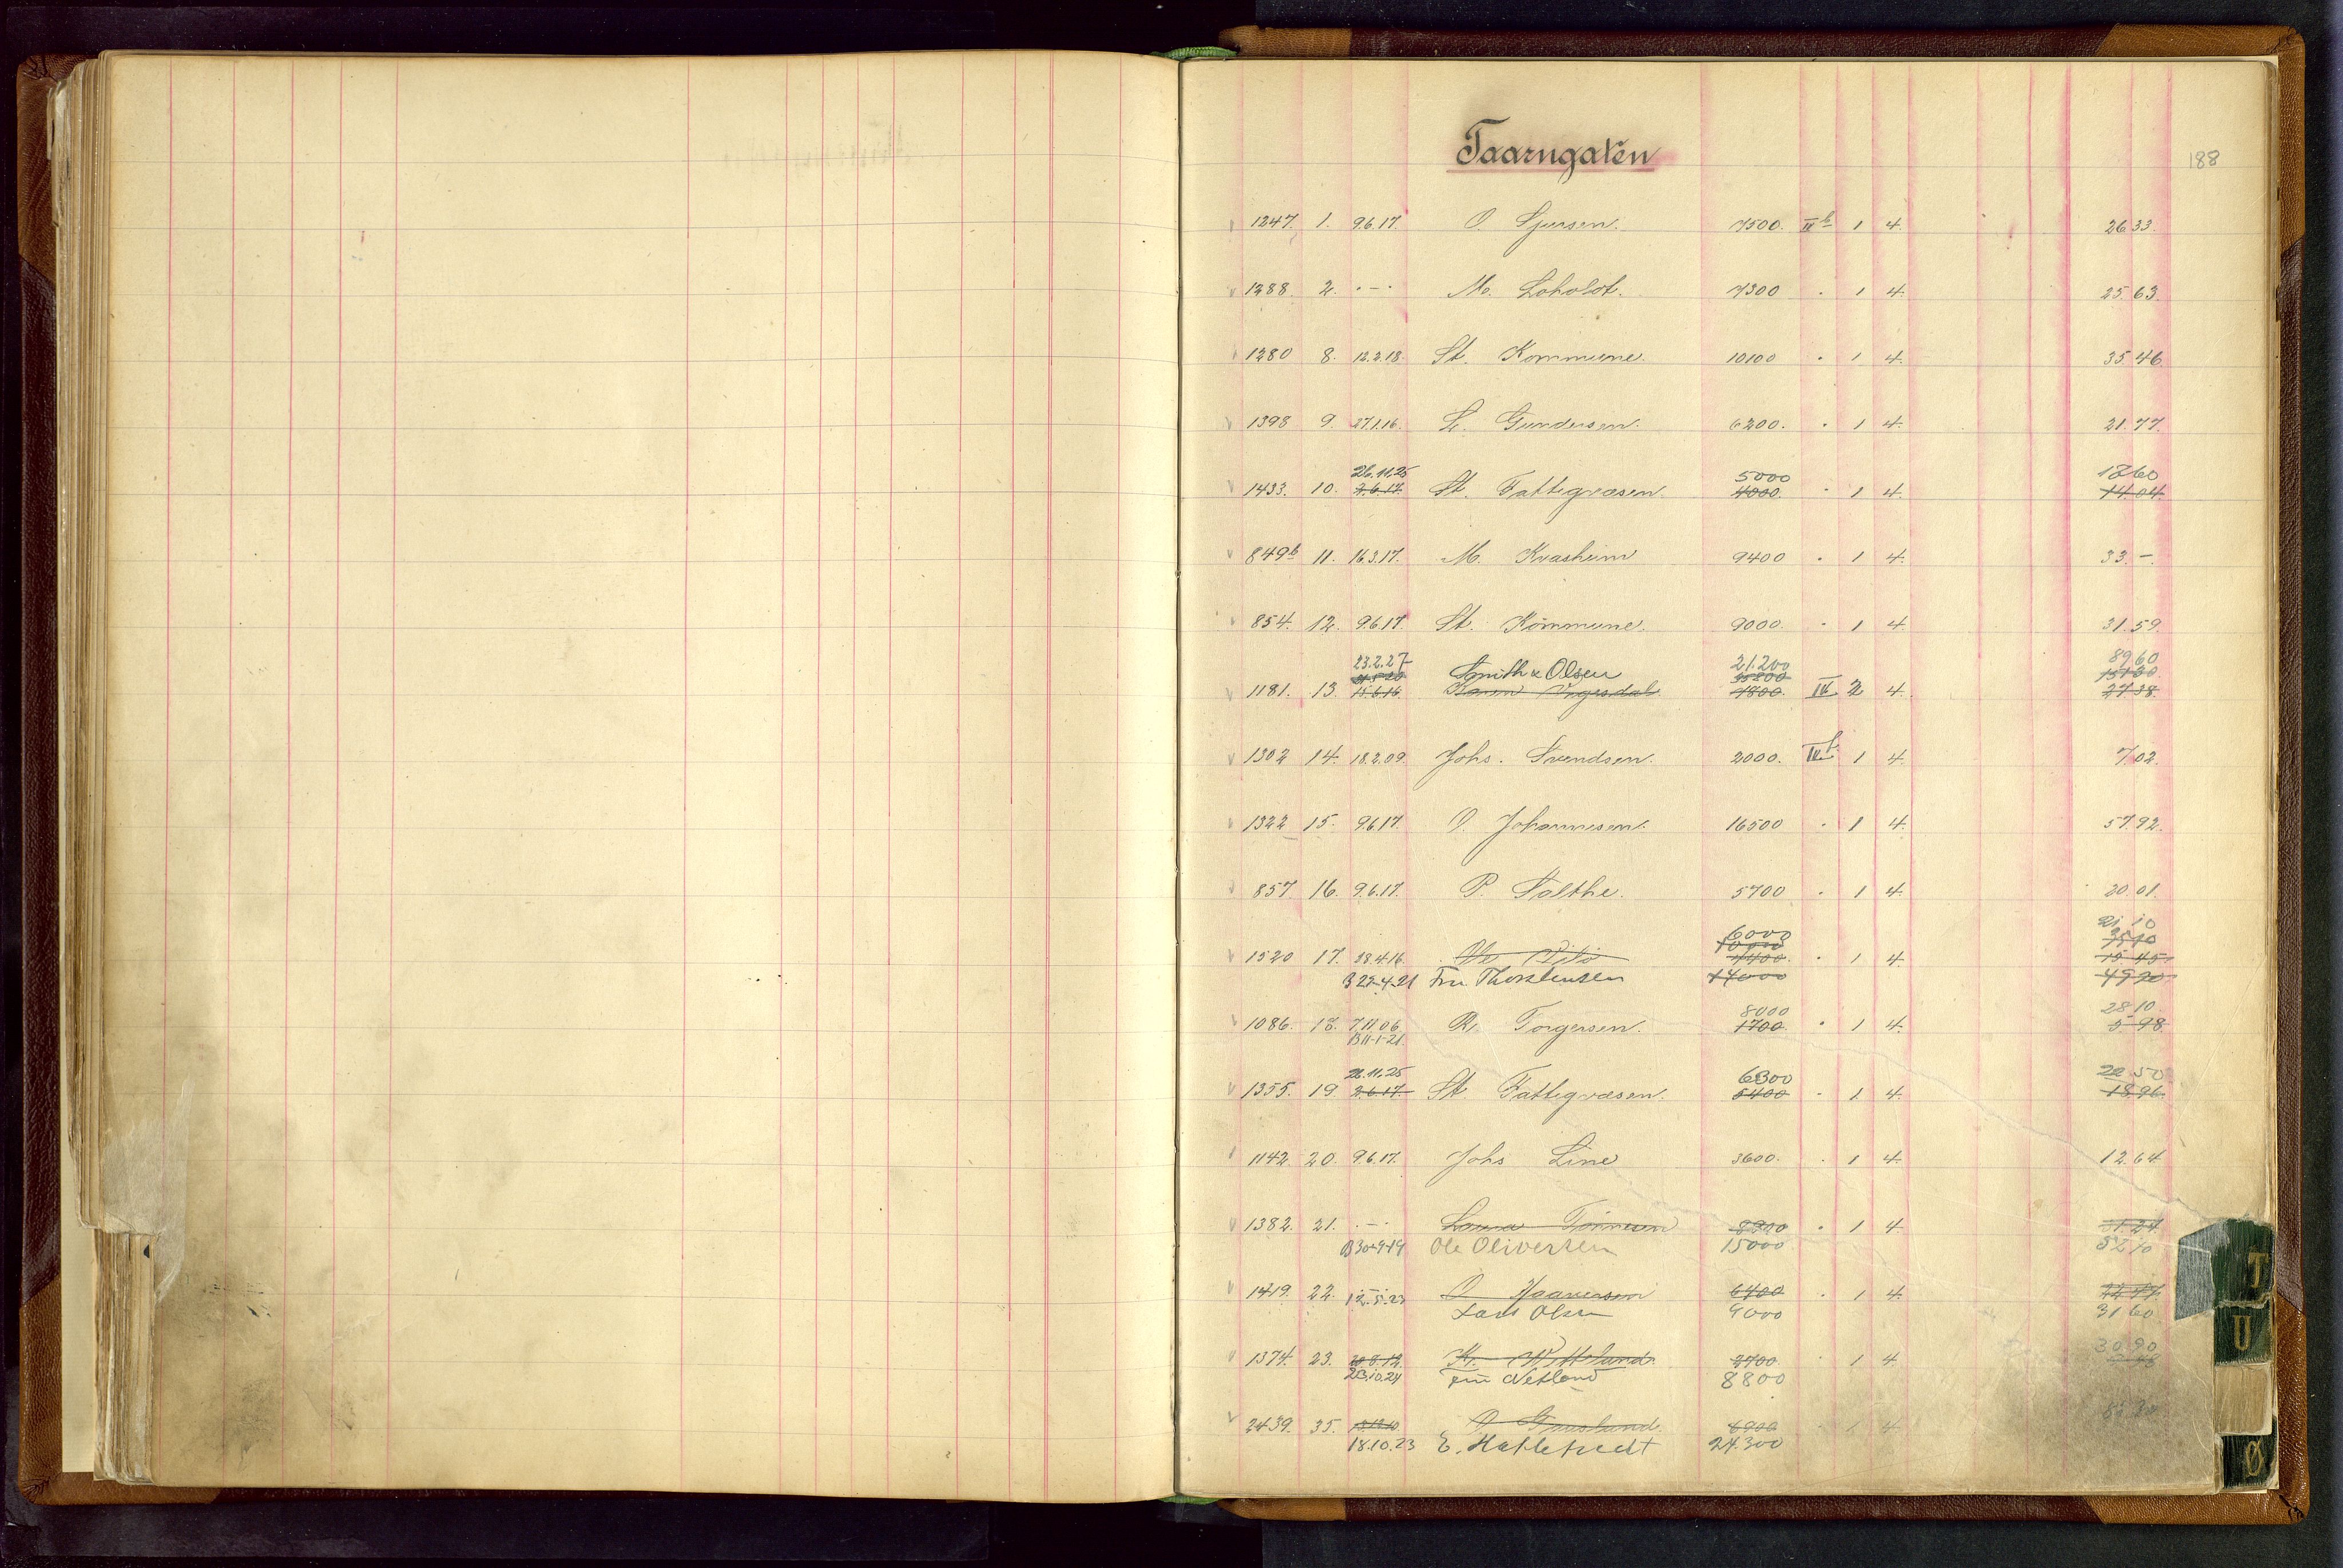 Taarngaten
188
1247. 1. 9.6.17. O. Sjursen. 7500. IIb 1 4. 26.33.
1288. 2. . - . M. Loholdt. 7300 . 1 4. 25.63.
1280 8. 12.2.18. St. Kommune. 10100 . 1 4. 35.46.
1398 9. 27.1.16. L. Gundersen. 6200. . 1 4. 21.77.
26.11.25 5000 1760
1433. 10. 2.6.17. St. Fattigvæsen 4000. . 1 4. 14.04.
849b 11. 16.3.17. M. Kvasheim 9400 . 1 4. 33.-.
854. 12. 9.6.17. St. Kommune. 9000. . 1 4. 31.59.
23.2.27 Smith & Olsen 21.200 8960
1181. 13. 15.6.16. 7800. IV 2 4. 27.38.
1302 14. 18.2.09. Johs. Svendsen. 2000. IIb 1 4. 7.02.
1322 15. 9.6.17. O. Johannesen. 16500 . 1 4. 57.92.
857. 16. 9.6.17. P. Salthe. 5700 . 1 4. 20.01.
6000 21.10
10000 3510
1520 17. 28.4.16. 4400. . 1 4. 15.45.
B 22-4-21 Fru Thorstensen 14000 4920
8000 28.10
1086. 18. 7.11.06. R. Torgersen. 1700. . 1 4. 5.98.
B 11-1-21.
26.11.25 6300 22.50
1355. 19. 2.6.17. St. Fattigvæsen. 5400 . 1 4. 18.96.
1142. 20. 9.6.17. Johs Line 3600. . 1 4. 12.64
1382. 21. . - . Laura Tönnesen 8900 . 1 4. 31.24.
B 30-9-19 Ole Oliversen 15000 52.70
1419. 22. . - . O. Haaversen 6400 . 1 4. 22.47.
12.5.23 Lars Olsen 9000 31.60
30.90
1374. 23. 20.8.12. 2700. . 1 4
23.10.24 Fru Netland 8800
2439. 35. 6900 . 1 4
18.10.23 E. Hatletvedt 24.300
T
U
Ø